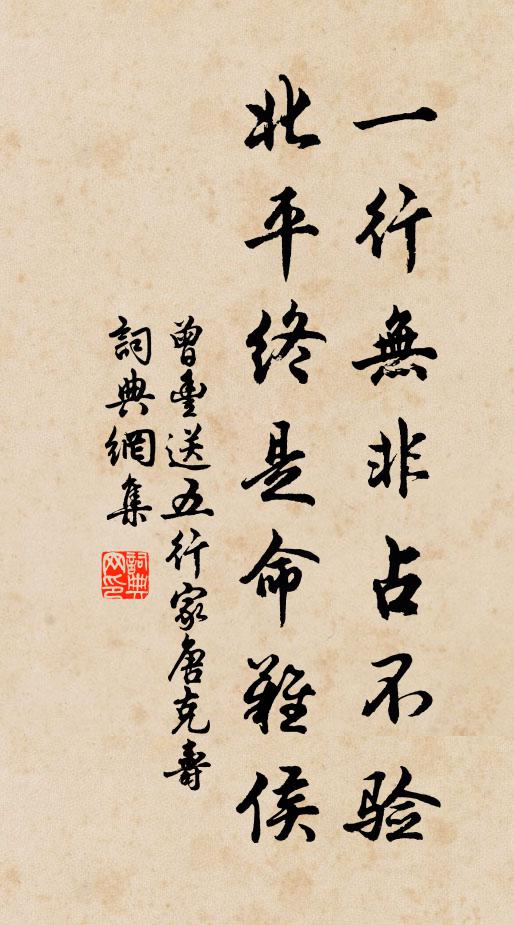 一行無非占不验
北平终是命難侯
曾豐送五行家唐克壽
詞典網集
詞典网印